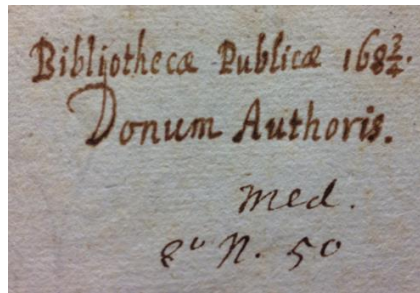 Bibliothecæ Publicæ 168¾.
Donum Authoris.
Med.
8° N. 50